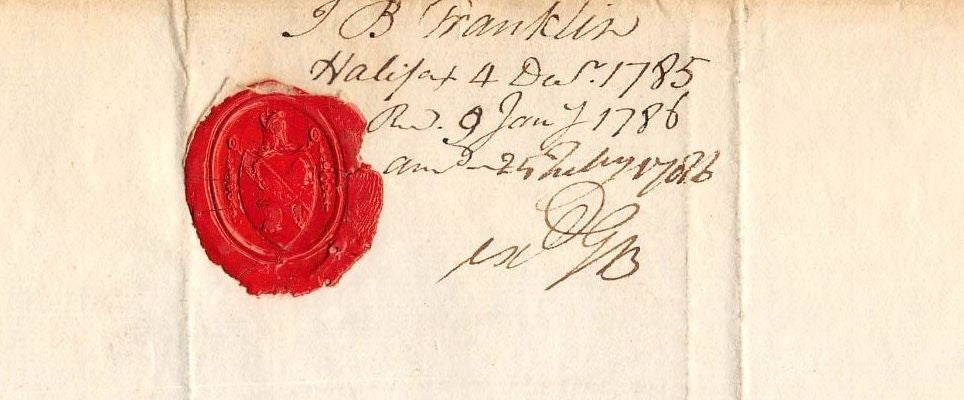 J B Franklin
Halifax 4 Decr. 1785
Rd. 9 Jany 1786
ansd 25 Feby 1786
exd GB